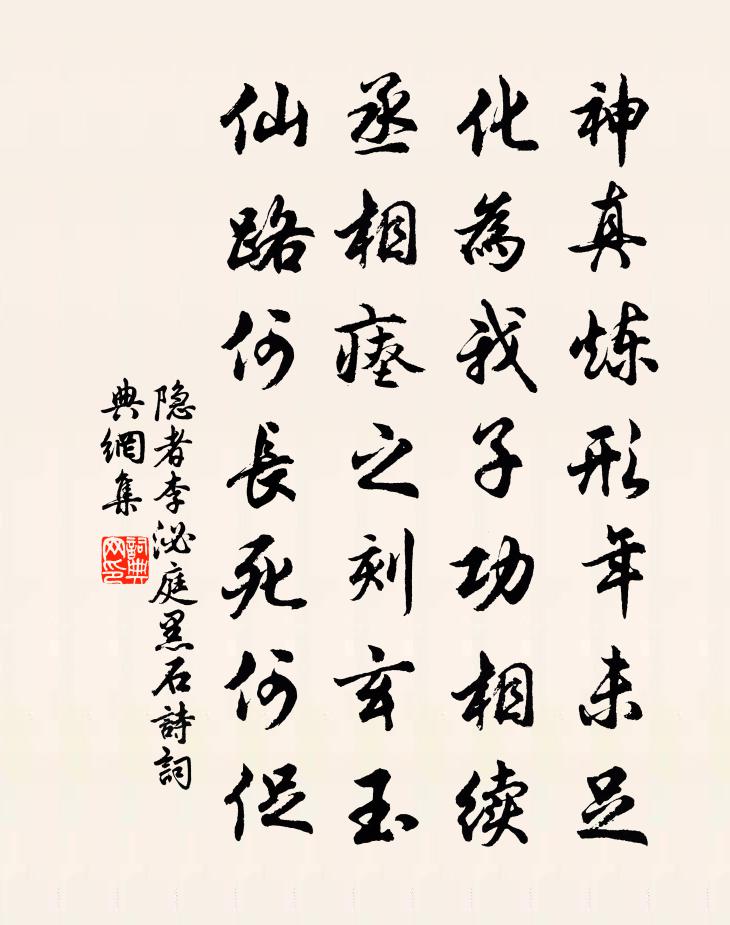 神真炼形年未足
化為我子功相续
丞相瘗之刻玄玉
仙路何長死何促
隐者李泌庭黑石詩詞
典網集
詞典
网印